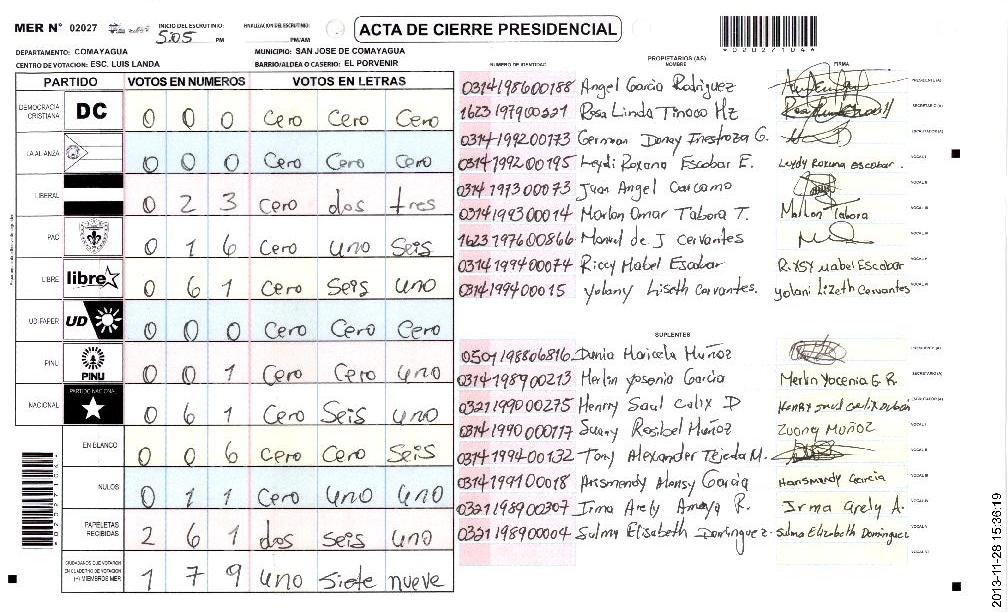 MER Nº 02027 INICIO DEL ESCRUTINIO: 5:05 PM FINALIZACION DEL ESCRUTINIO: PM/AM
ACTA DE CIERRE PRESIDENCIAL
DEPARTAMENTO: COMAYAGUA MUNICIPIO: SAN JOSE DE COMAYAGUA
CENTRO DE VOTACION: ESC. LUIS LANDA BARRIO/ALDEA O CASERIO: EL PORVENIR
PARTIDO VOTOS EN NUMEROS VOTOS EN LETRAS
DEMOCRACIA CRISTIANA DC 0 0 0 Cero Cero Cero
LA ALIANZA 0 0 0 Cero Cero Cero
LIBERAL 0 2 3 Cero dos tres
PAC 0 1 6 Cero uno Seis
LIBRE libre 0 6 1 Cero Seis uno
UD-FAPER UD 0 0 0 Cero Cero Cero
PINU PINU 0 0 1 Cero Cero uno
NACIONAL PARTIDO NACIONAL 0 6 1 Cero Seis uno
EN BLANCO 0 0 6 Cero Cero Seis
NULOS 0 1 1 Cero uno uno
PAPELETAS RECIBIDAS 2 6 1 dos seis uno
CIUDADANOS QUE VOTARON EN CUADERNO DE VOTACION (+) MIEMBROS MER 1 7 9 uno Siete nueve
PROPIETARIOS (AS)
NUMERO DE IDENTIDAD NOMBRE FIRMA
0314198600188 Angel Garcia Rodriguez PRESIDENTE (A)
1623197900221 Rosa Linda Tinoco Hz SECRETARIO (A)
0314199200173 German Donay Inestroza G. ESCRUTADOR (A)
0314199200195 Leydi Roxana Escobar E. Leydy Roxana escobar. VOCAL I
0314197300073 Juan Angel Carcamo VOCAL II
0314199300014 Marlon Omar Tabora T. Marlon Tabora VOCAL III
1623197600866 Manuel de J Cervantes VOCAL IV
0314199400074 Riccy Mabel Escobar Riysy mabel Escobar VOCAL V
0314199400015 Yolany Liseth Cervantes. Yolani Lizeth Cervantes VOCAL VI
SUPLENTES
0501198806816 Dunia Maricela Muñoz PRESIDENTE (A)
0314198900213 Merlin Yosenia Garcia Merlin Yocenia G. R. SECRETARIO (A)
0321199000275 Henrry Saul Calix D ESCRUTADOR (A)
0314199000117 Suany Rosibel Muñoz Zuany Muñoz VOCAL I
0314199400132 Tony Alexander Tejeda M. VOCAL II
0314199100018 Arismendy Garcia Hansmendy Garcia VOCAL III
0321198900307 Irma Arely Amaya R. Irma Arely A. VOCAL IV
0321198900004 Sulma Elisabeth Dominguez. Sulma Elizabeth Dominguez VOCAL V
VOCAL VI
2013-11-28 15:36:19